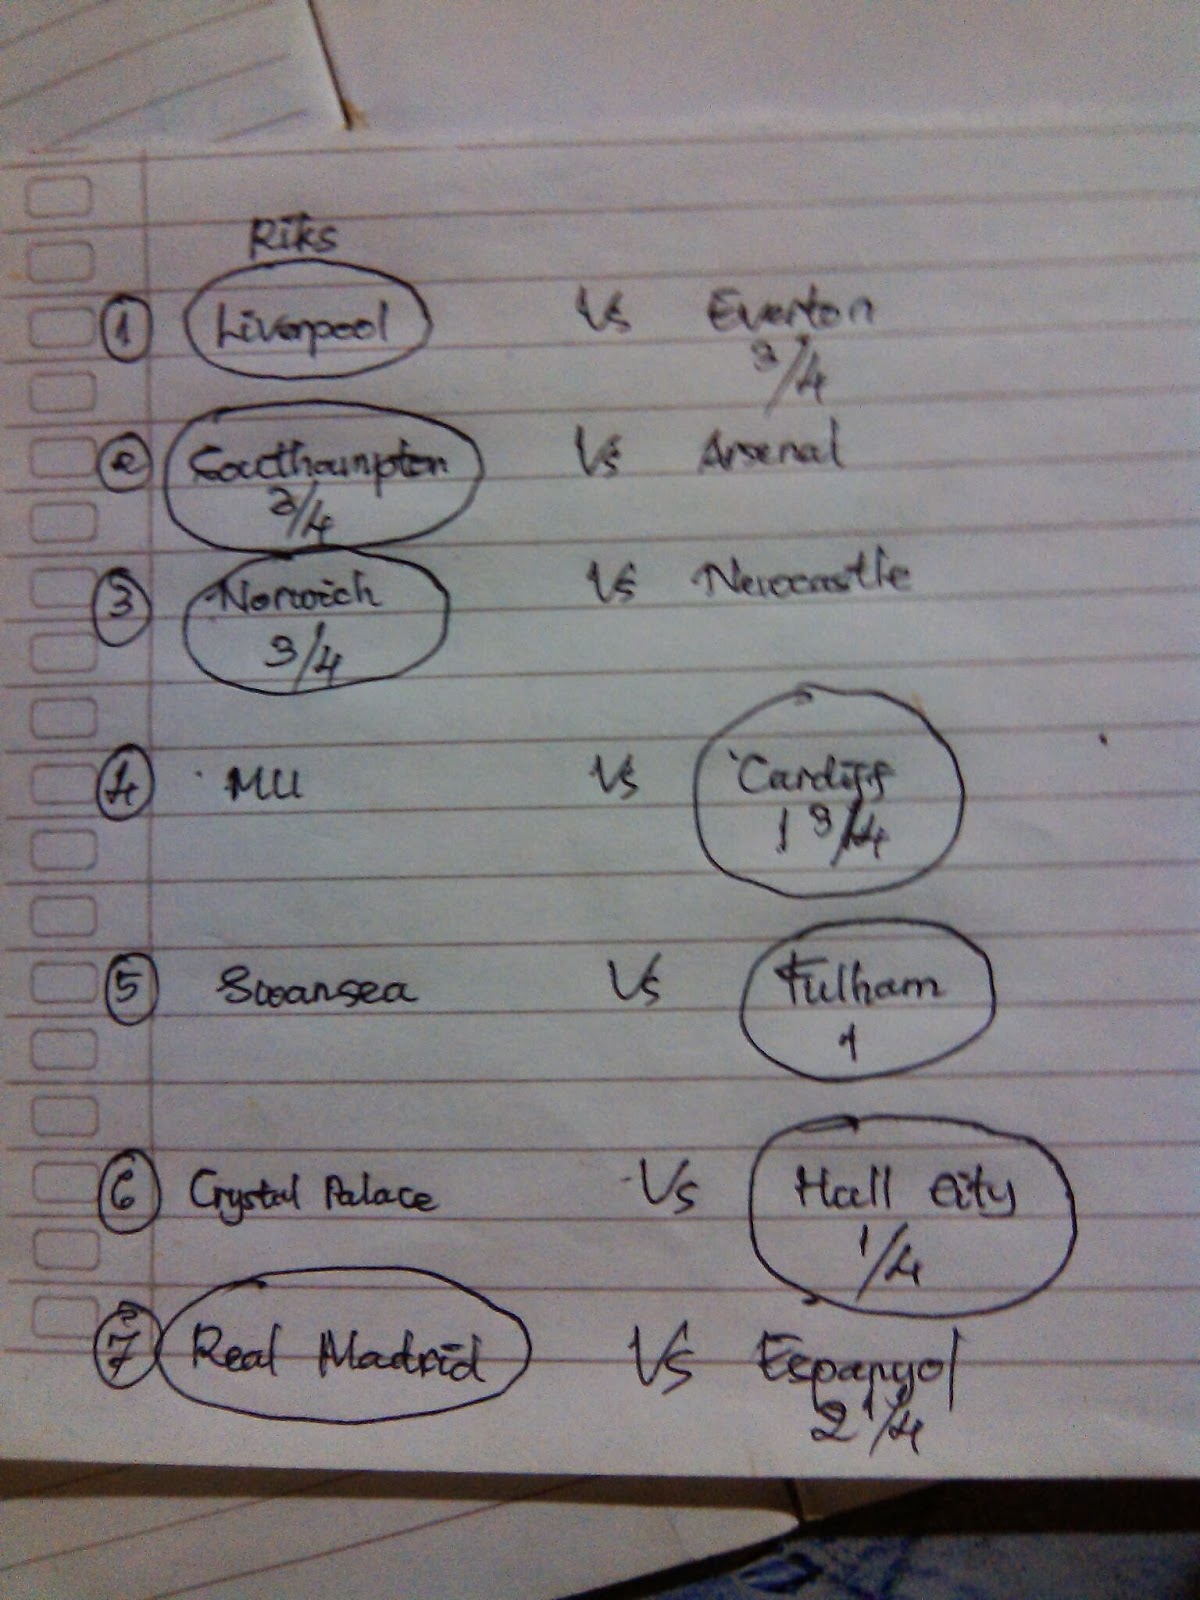 Riks
① Liverpool Vs Everton
3/4
② Southampton Vs Arsenal
3/4
③ Norwich Vs Newcastle
3/4
④ MU Vs Cardiff
1 3/4
⑤ Swansea Vs Fulham
1
⑥ Crystal Palace Vs Hall City
1/4
⑦ Real Madrid Vs Espanyol
2 1/4